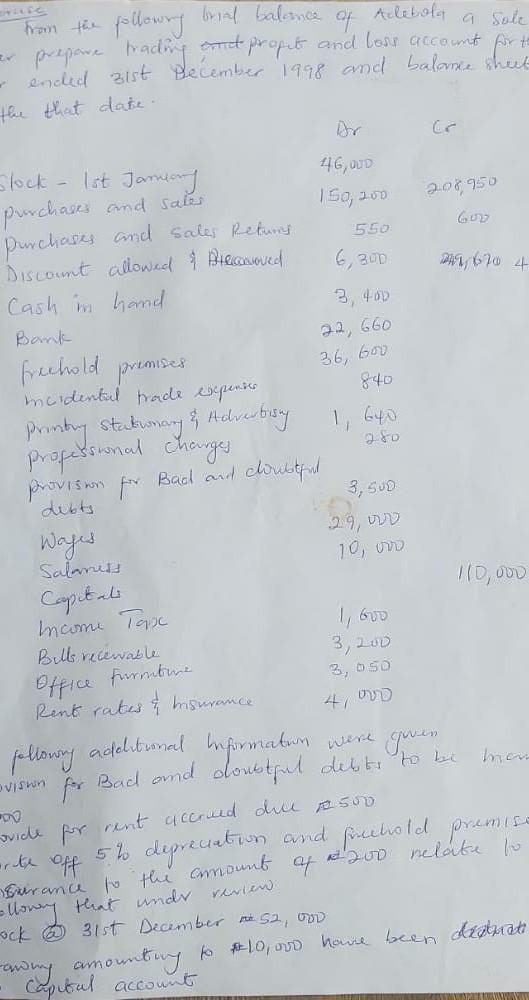 from the following trial balance of Adebola a Sole
prepare trading profit and loss account for th
ended 31st December 1998 and balance sheet
the that date.
Dr Cr
Stock - 1st January 46,000
purchases and sales 150,200 208,950
purchases and sales Returns 550 600
Discount allowed & 6,300 4
Cash in hand 3,400
Bank 22,660
freehold premises 36,600
incidental trade expenses 840
printing stationary & Advertising 1,640
professional Charges 280
provision for Bad and doubtful
debts 3,500
Wages 29,000
Salaries 10,000
Capitals 110,000
Income Tax 1,600
Bills receivable 3,200
Office Furniture 3,050
Rent rates & insurance 4,000
following additional information were given
for Bad and doubtful debts to be
for rent accrued due ₦500
off 5% depreciation and freehold premise
to the amount of ₦200 relate to
that undr review
@ 31st December ₦52,000
amounting to ₦10,000 have been
Capital account